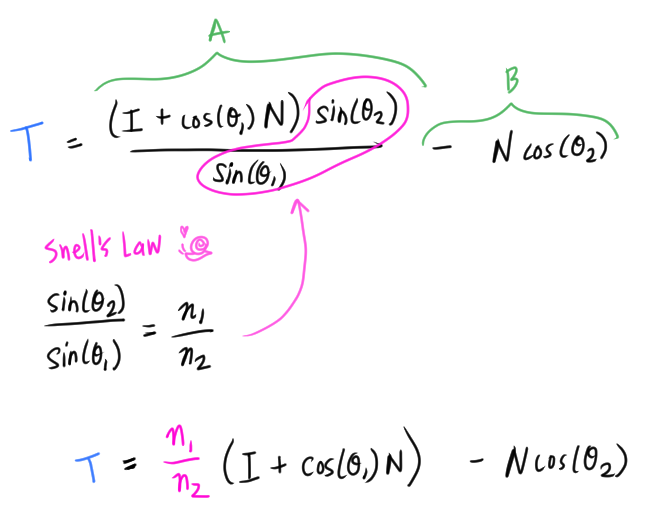 A
B
T = (I + cos(θ₁) N) sin(θ₂) / sin(θ₁) - N cos(θ₂)
Snell's Law
sin(θ₂) / sin(θ₁) = n₁ / n₂
T = n₁ / n₂ (I + cos(θ₁) N) - N cos(θ₂)